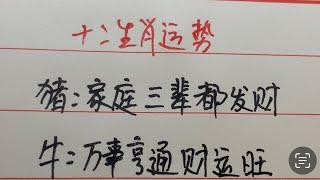 十二生肖运势
猪:家庭三辈都发财
牛:万事亨通财运旺